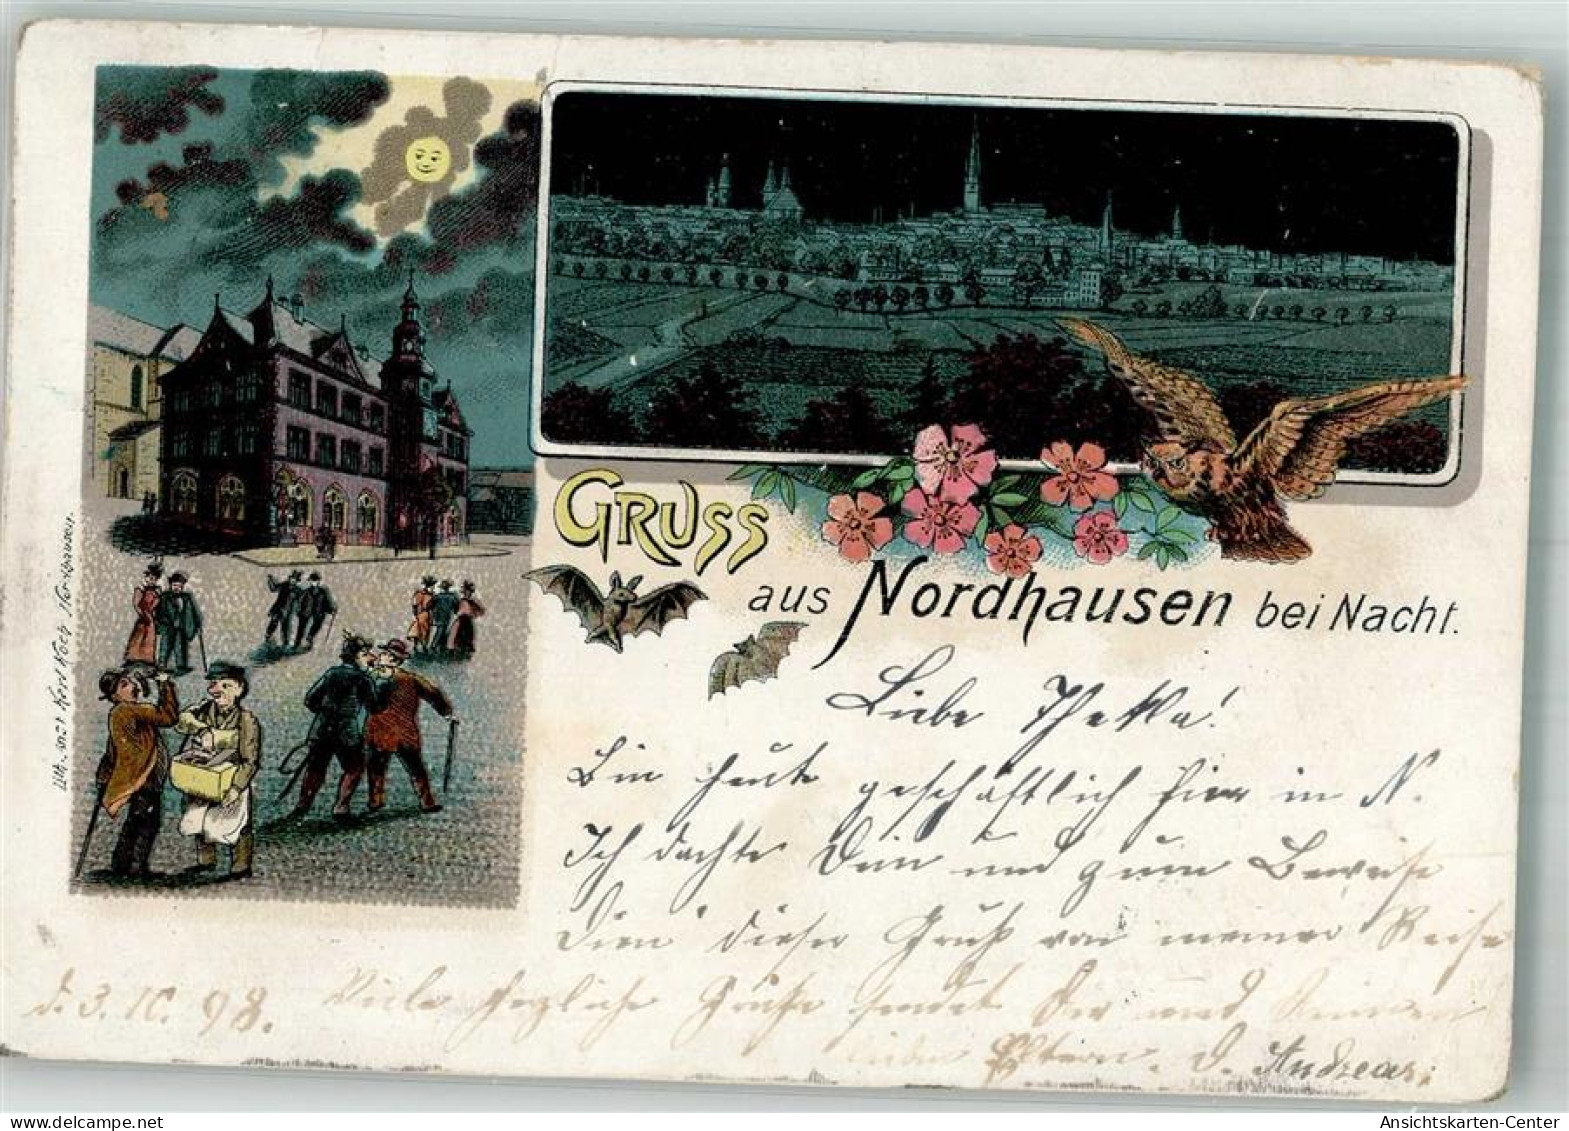 GRUSS
aus Nordhausen bei Nacht.
Liebe Thekla!
Bin heute geschäftlich hier in N.
Ich dachte Dein und zum Beweise
Dien dieser Gruß von meiner Reise
d. 3. IX. 98. Viele herzliche Grüße sendet Dir und Deinen
lieben Eltern. D. Andreas.
Karl Koch, Nordhausen.
Ansichtskarten-Center